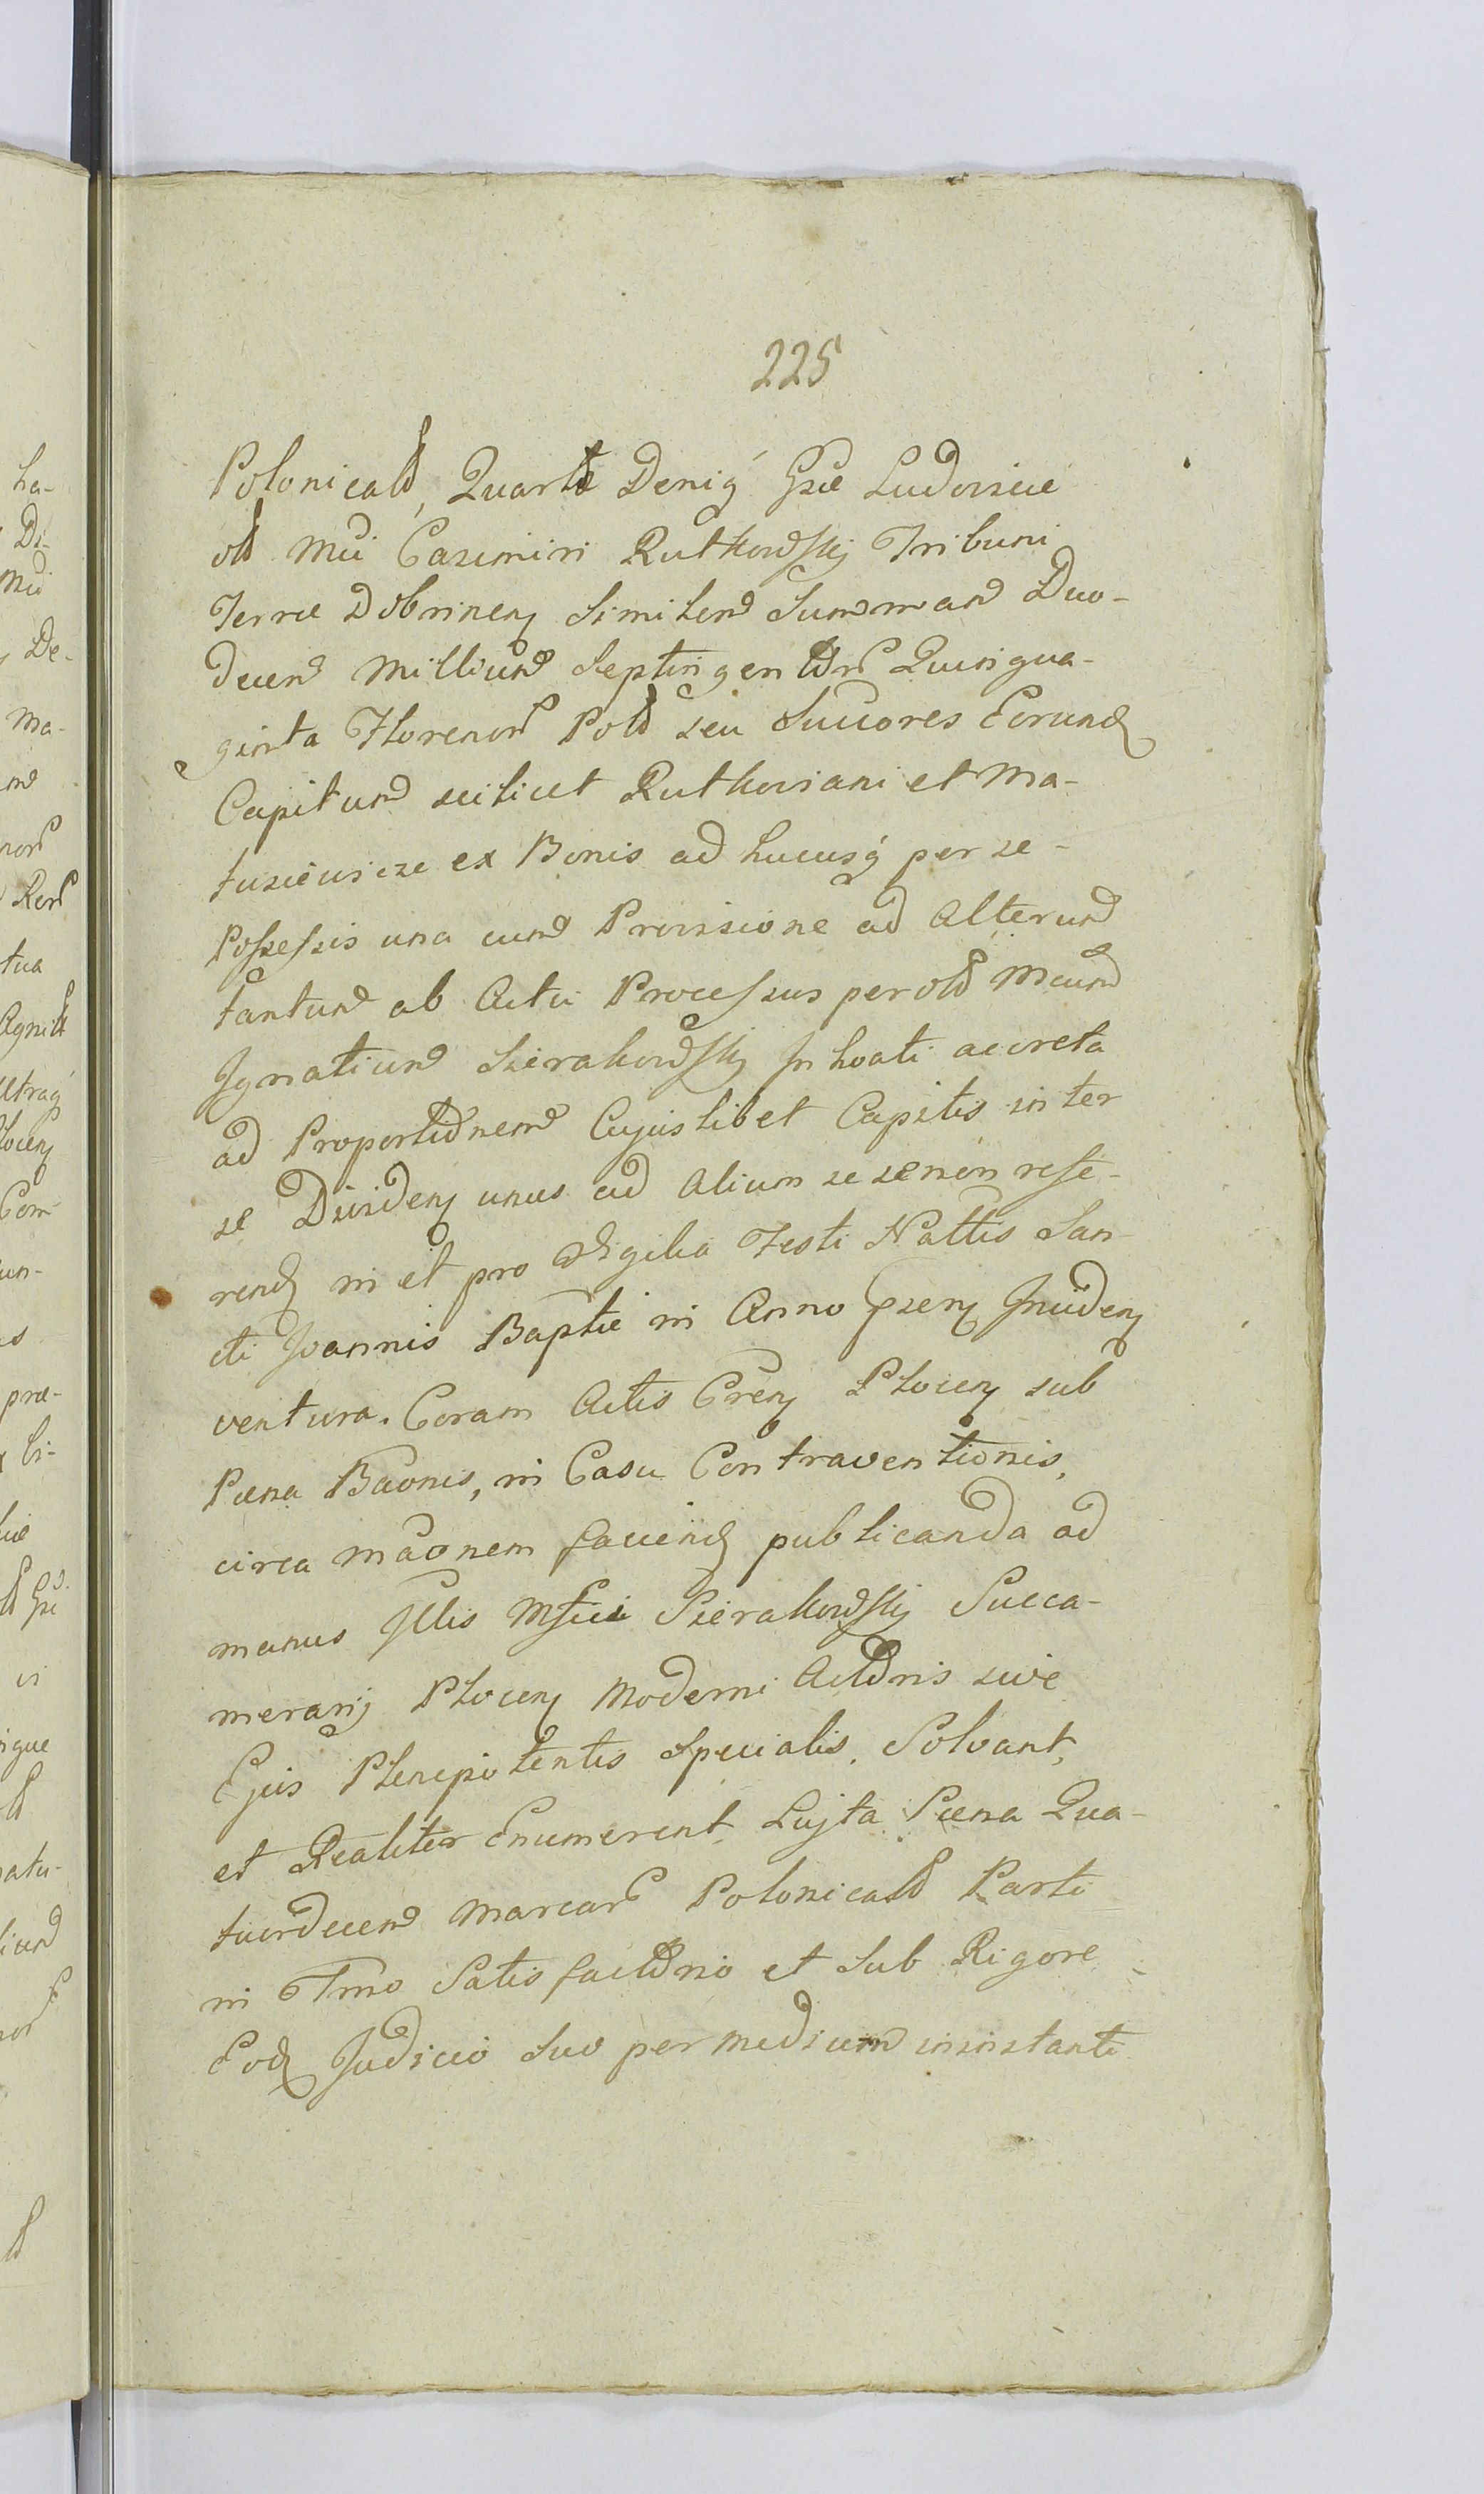 225
Polonicalium, Quartæ Deniq Gsæ Ludovicæ
olim Mci Casimiri Rutkowskij Tribuni
Terræ Dobrinen Similem Summam Duo-
decem Millium Septingentor Quinqua-
ginta Florenor Pol seu Succores Eorund
Capitum scilicet Rutkoviani et Ma-
ex Bonis ad hucusq per se-
Possessis una cum Provisione ad Alterum
tantum ab Actu Processus per olim Mcum
Ignatium Sierakowskij Inhoati accreta
ad Proportionem Cujuslibet Capitis inter
se Dividen unus ad Alium se se non refe-
rend in et pro Vigilia Festi Nattis San-
cti Joannis Baptæ in Anno psen Inciden
ventura. Coram Actis Cren Plocen sub
Pæna Baonis, in Casu Contraventionis,
circa maonem faciend publicanda ad
manus Illis Mfici Sierakowskij Succa-
merarij Plocen Moderni Actoris sive
Ejus Plenipotentis Specialis, Solvant,
et Realiter Enumerent Lujta Pæna Qua-
tuordecem Marcar Polonical Parti
in Tmo Satisfactorio et Sub Rigore
Eod Judicio Suo per Medium insinstanti
ha-
Di-
Mci
De-
Ma-
Rer
tua
Com-
un-
præ-
li-